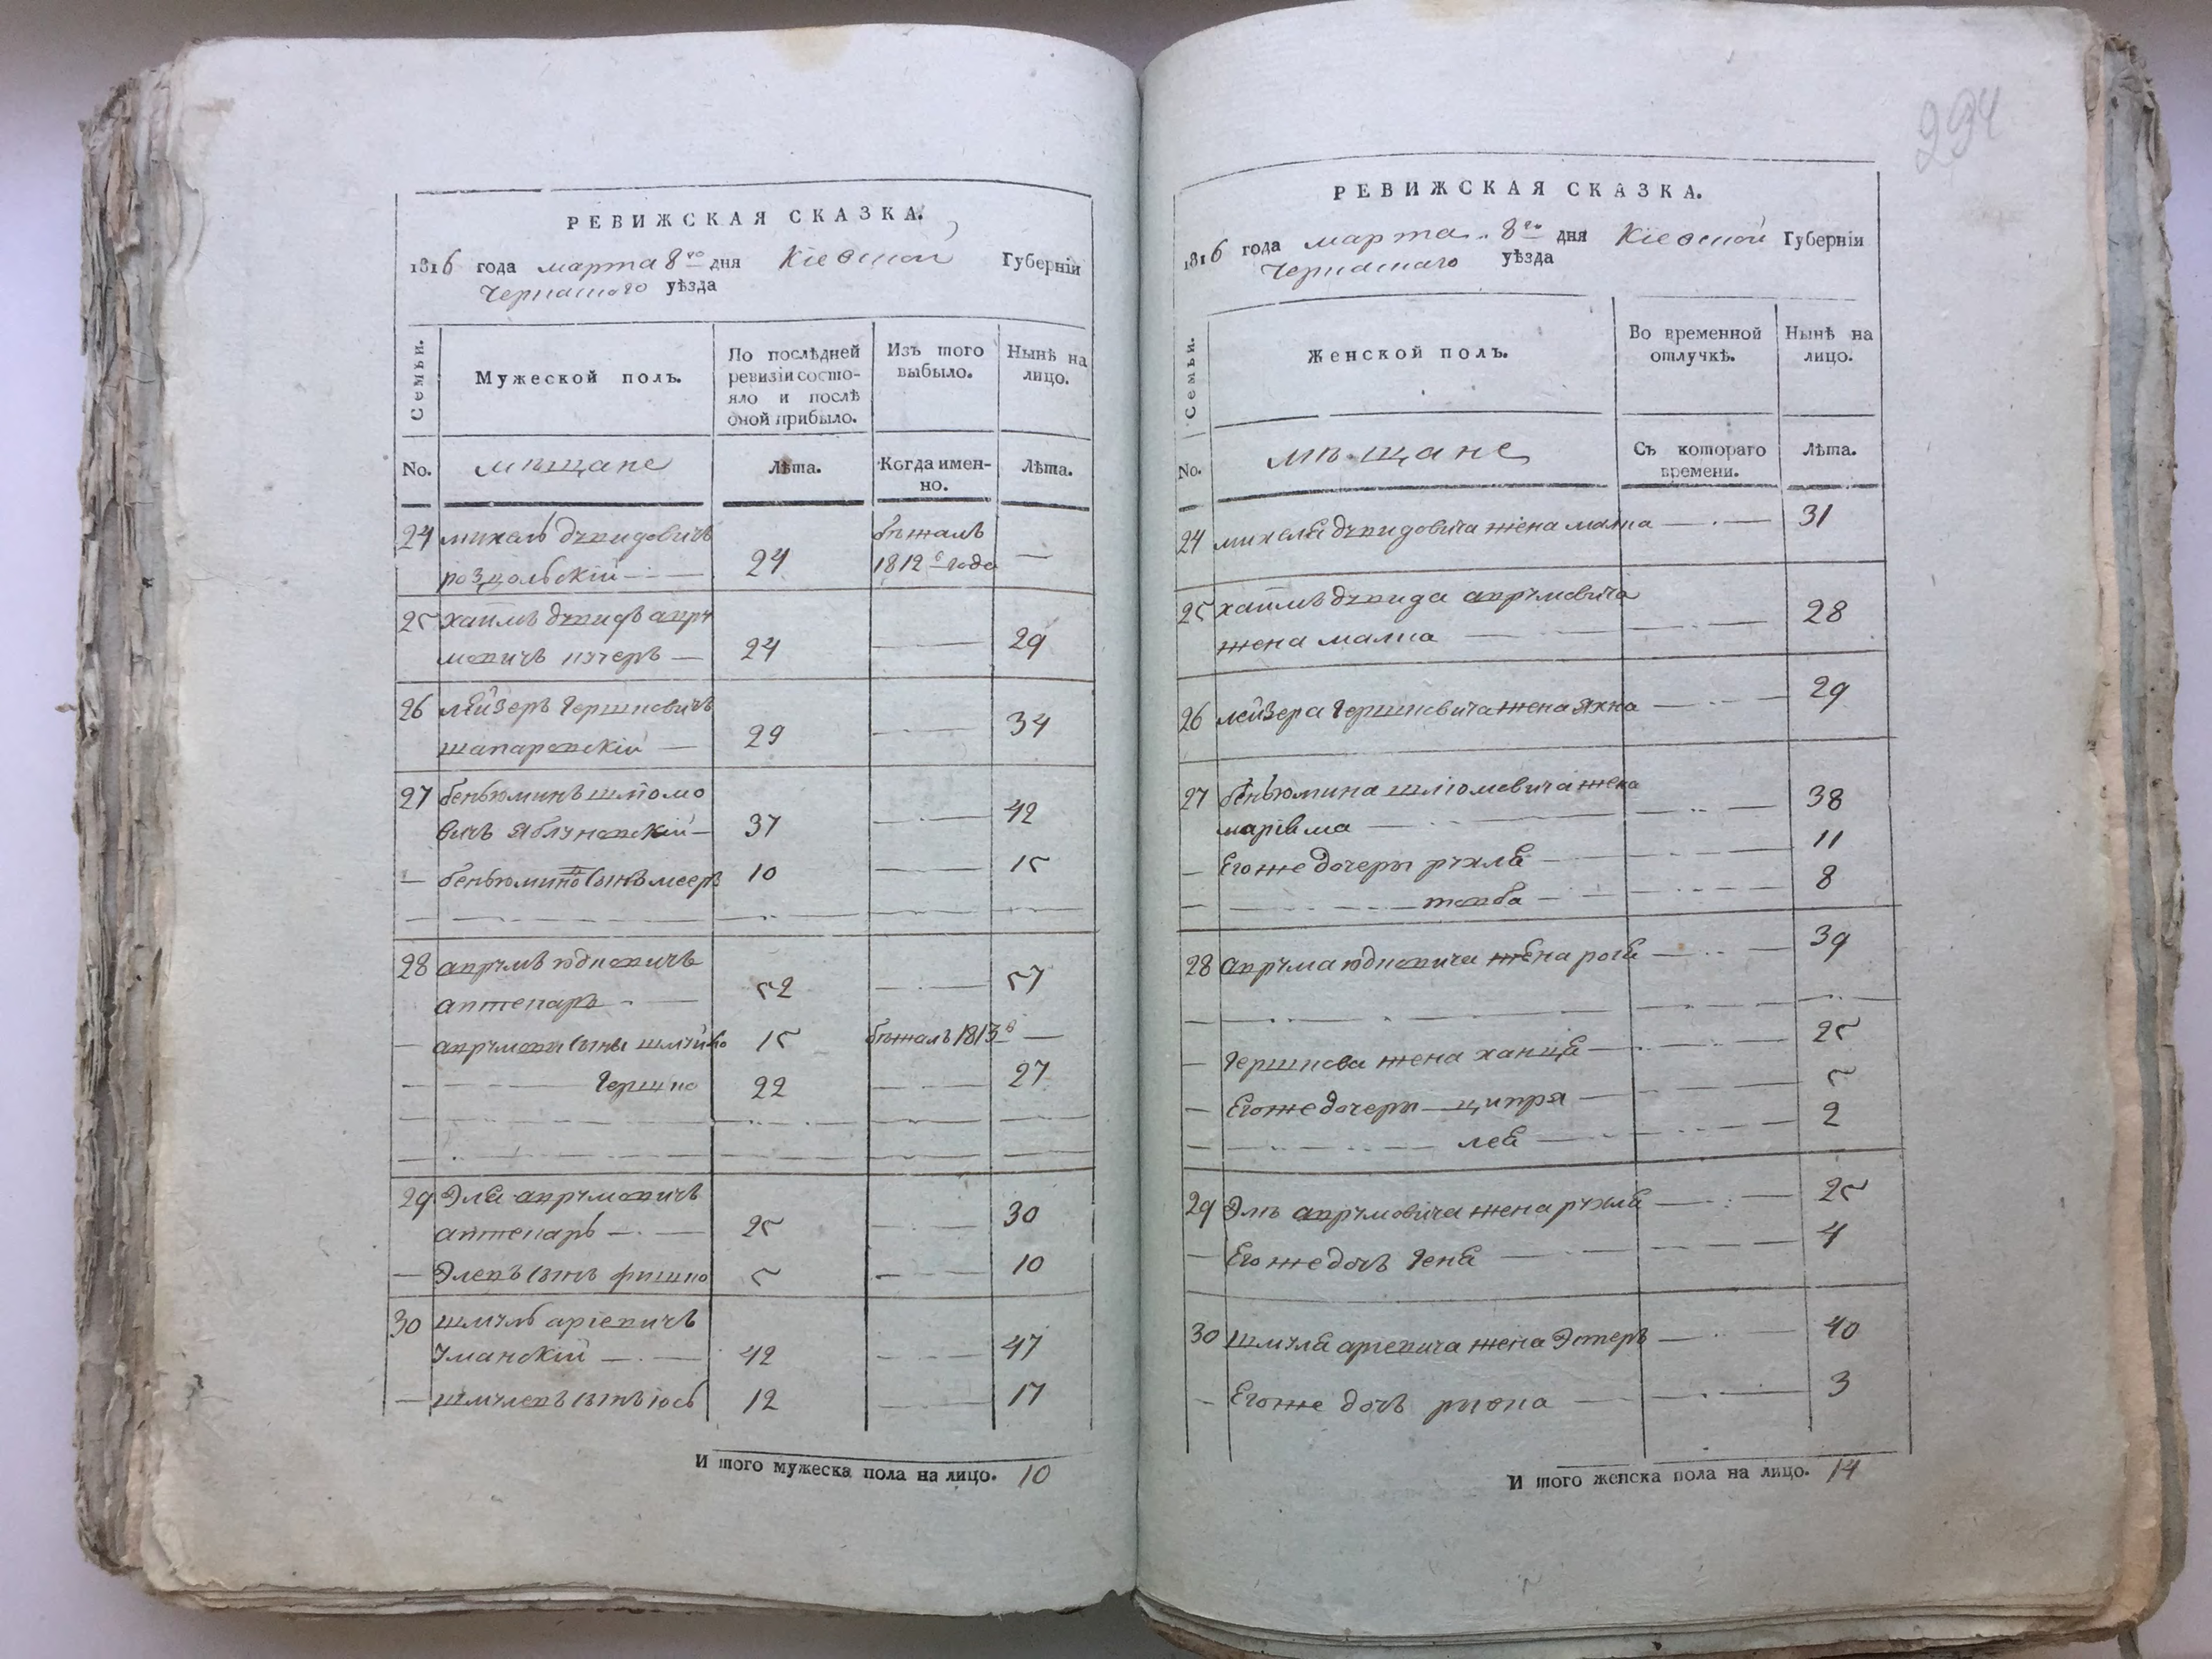 РЕВИЖСКАЯ СКАЗКА.
1816 года марта 8го дня Кіевской Губерніи
Черкаскаго уѣзда
Семьи.
Мужеской полъ.
По послѣдней
ревизіи состо-
яло и послѣ
оной прибыло.
Изъ того
выбыло.
Нынѣ на
лицо.
No.
мѣщане
Лѣта.
Когда имен-
но.
Лѣта.
24 михель дувидовичъ бѣжалъ
24 1812го года —
25 хаимъ дувидъ авру
мовичъ — 24 — 29
26 лейзеръ гершковичъ
шапаровскій — 29 — 34
27 беньюминъ шліомо
вичъ яблуновскій — 37 — 42
— беньюмина сынъ меер 10 — 15
28 аврумъ юдковичъ
аптекаръ — 52 — 57
— аврумови сыны 15 бѣжалъ 1813 —
— гершко 22 — 27
29 Эля аврумовичъ
аптекаръ — 25 — 30
— Элевъ сынъ фишко 5 — 10
30 шмуль аріевичъ
Уманскій — 42 — 47
— шмулевъ сынъ іось 12 — 17
И того мужеска пола на лицо. 10
294
РЕВИЖСКАЯ СКАЗКА.
1816 года марта 8го дня Кіевской Губерніи
Черкаскаго уѣзда
Семьи.
Женской полъ.
Во временной
отлучкѣ.
Нынѣ на
лицо.
No.
мѣщане
Съ котораго
времени.
Лѣта.
24 михеля дувидовича жена — 31
25 хаимъ дувида аврумовича
жена малка — 28
26 лейзера гершковича жена яхна — 29
27 беньюмина шліомовича жена
— 38
— Егоже дочеры рухля — 11
— тоаба — 8
28 аврума юдковича жена — 39
— гершкова жена ханця — 25
— Егоже дочеры — ципря — 5
— лея — 2
29 Эль аврумовича жена рухля — 25
— Егоже дочь геня — 4
30 шмуля аріевича жена Эстеръ — 40
— Егоже дочь — 3
И того женска пола на лицо. 14